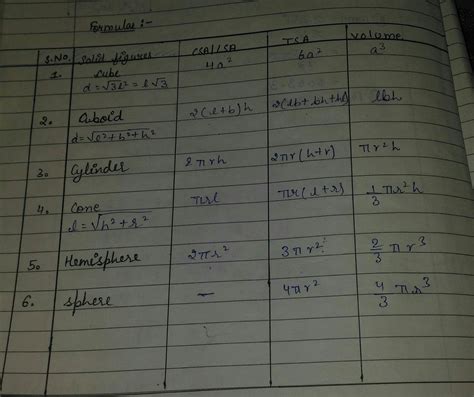 Formulas :-
S.No. Solid figures CSA/LSA TSA Volume
1. Cube 4a² 6a² a³
d = √3l² = l√3
2. Cuboid 2(l+b)h 2(lb+bh+hl) lbh
d = √l²+b²+h²
3. Cylinder 2πrh 2πr(h+r) πr²h
4. Cone πrl πr(l+r) 1/3 πr²h
l = √h²+r²
5. Hemisphere 2πr² 3πr² 2/3 πr³
6. Sphere – 4πr² 4/3 πr³